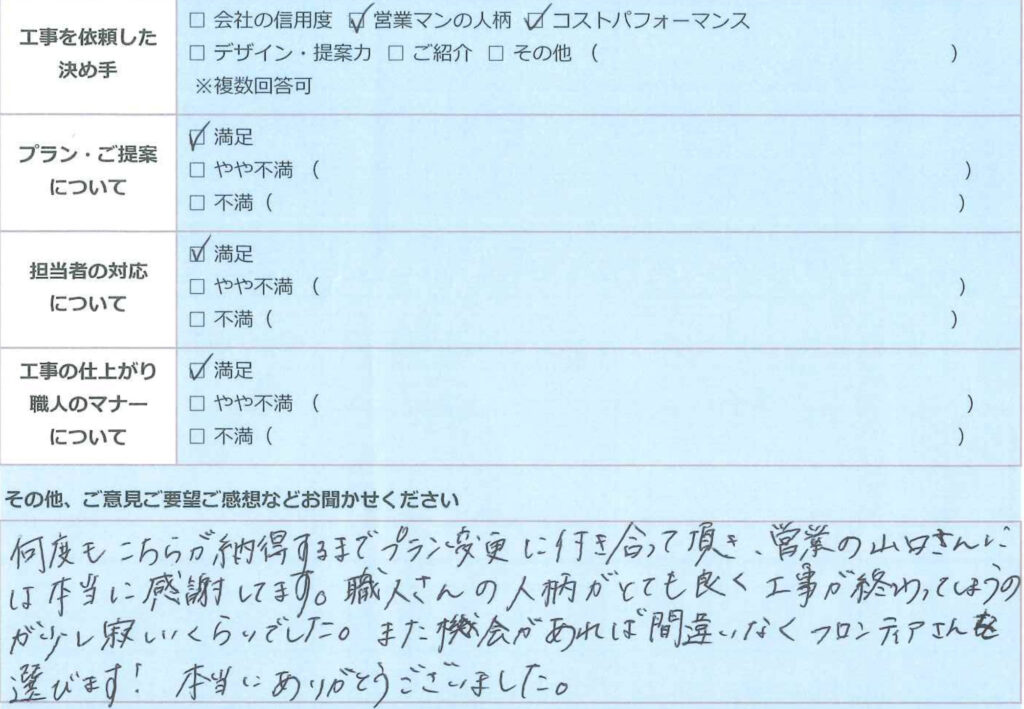 工事を依頼した
決め手
□ 会社の信用度 ☑ 営業マンの人柄 ☑ コストパフォーマンス
□ デザイン・提案力 □ ご紹介 □ その他 ( )
※複数回答可
プラン・ご提案
について
☑ 満足
□ やや不満 ( )
□ 不満 ( )
担当者の対応
について
☑ 満足
□ やや不満 ( )
□ 不満 ( )
工事の仕上がり
職人のマナー
について
☑ 満足
□ やや不満 ( )
□ 不満 ( )
その他、ご意見ご要望ご感想などお聞かせください
何度もこちらが納得するまでプラン変更に付き合って頂き、営業の山口さんに
は本当に感謝してます。職人さんの人柄がとても良く工事が終わってしまうの
が少し寂しいくらいでした。また機会があれば間違いなくフロンティアさんを
選びます! 本当にありがとうございました。